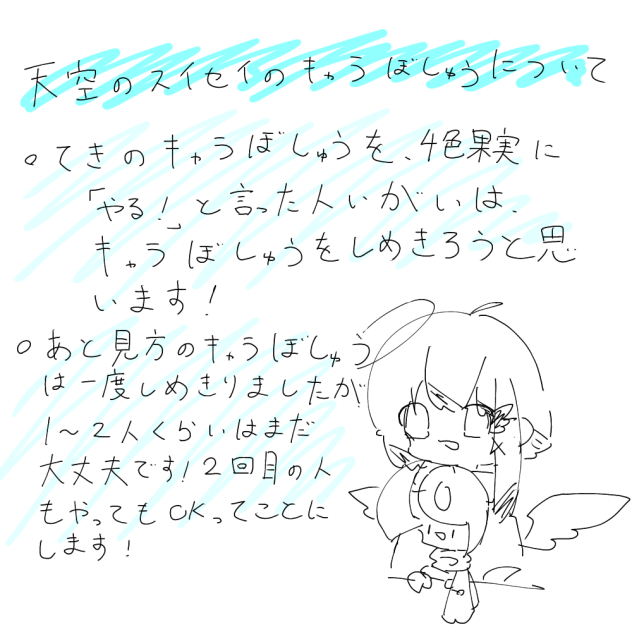 天空のスイセイのキャラぼしゅうについて
○てきのキャラぼしゅうを、4色果実に
「やる!」と言った人いがいは、
キャラぼしゅうをしめきろうと思
います!
○あと見方のキャラぼしゅう
は一度しめきりましたが
1〜2人くらいはまだ
大丈夫です!2回目の人
もやってもOKってことに
します!